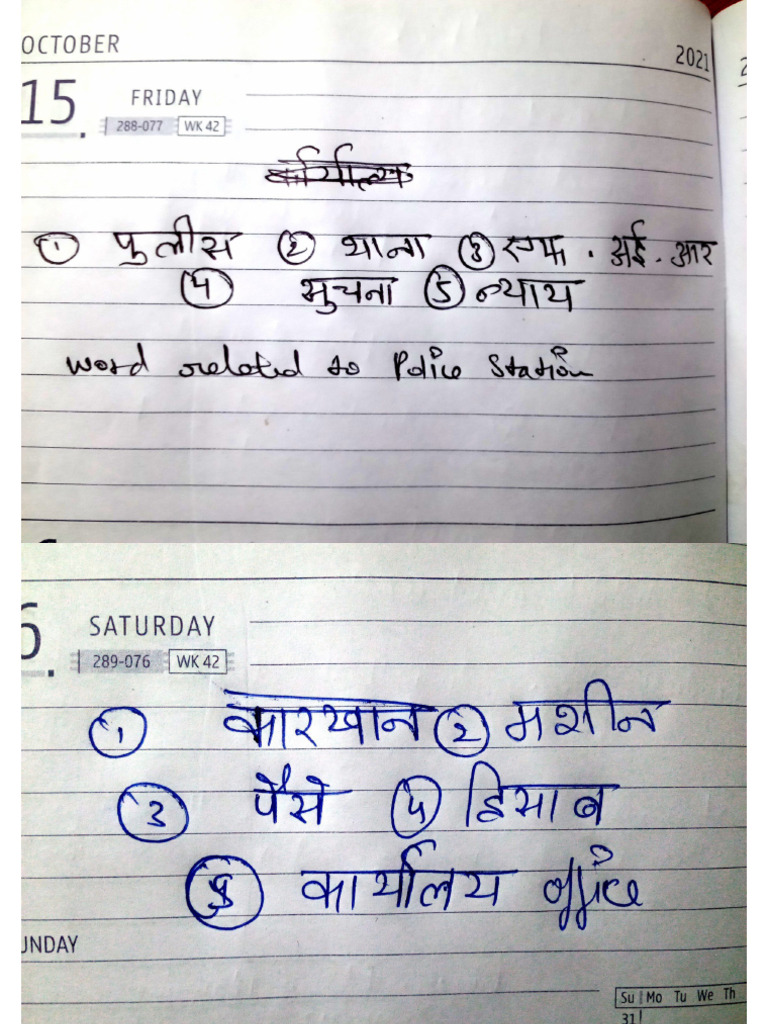 OCTOBER 2021
15. FRIDAY
288-077 WK 42
कार्यालय
① पुलीस ② थाना ③ एफ. अई. आर
④ सुचना ⑤ न्याय
word related to Police Station
6. SATURDAY
289-076 WK 42
① कारखान ② मशीन
③ पैसे ④ हिसाब
⑤ कार्यालय office
UNDAY
Su Mo Tu We Th
31